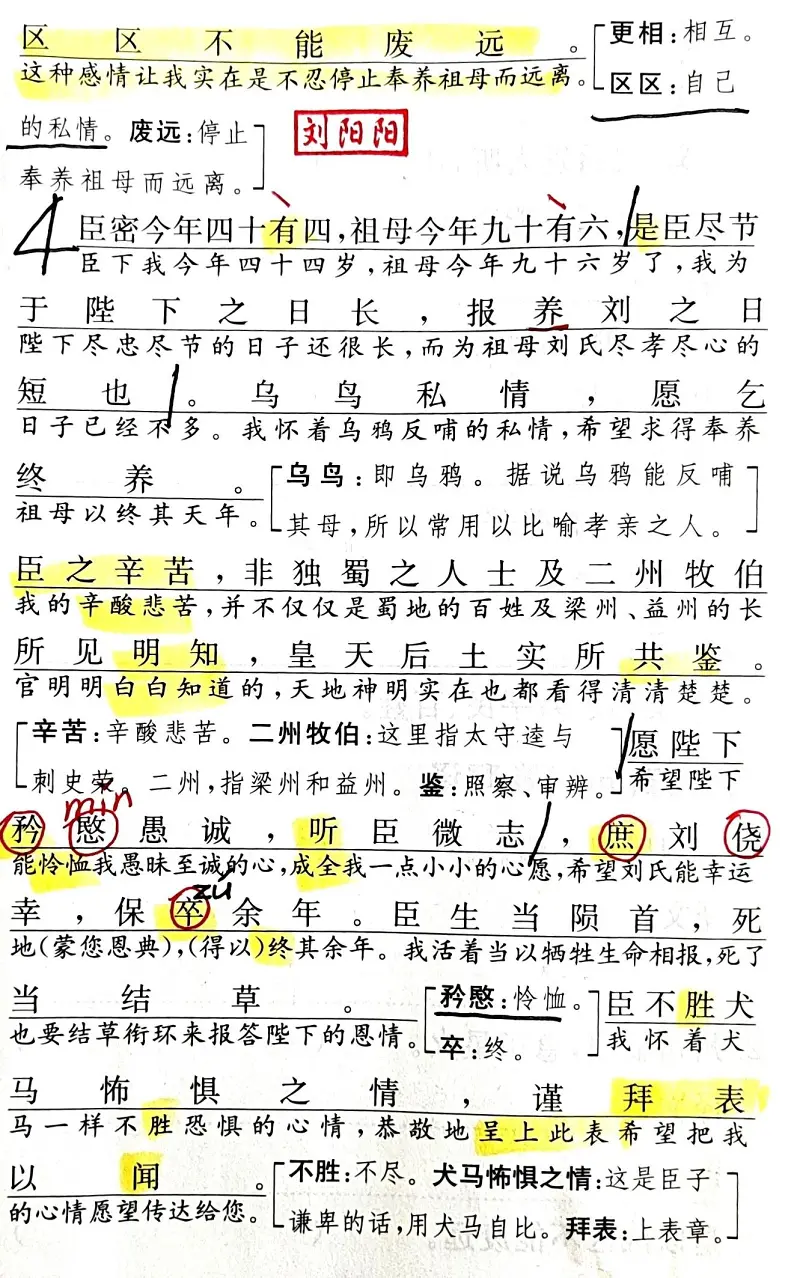 区区不能废远。
更相：相互。
这种感情让我实在是不忍停止奉养祖母而远离。
区区：自己
的私情。废远：停止
奉养祖母而远离。
刘阳阳
4
臣密今年四十有四，祖母今年九十有六，是臣尽节
臣下我今年四十四岁，祖母今年九十六岁了，我为
于陛下之日长，报养刘之日
陛下尽忠尽节的日子还很长，而为祖母刘氏尽孝尽心的
短也。乌鸟私情，愿乞
日子已经不多。我怀着乌鸦反哺的私情，希望求得奉养
终养。
祖母以终其天年。
乌鸟：即乌鸦。据说乌鸦能反哺
其母，所以常用以比喻孝亲之人。
臣之辛苦，非独蜀之人士及二州牧伯
我的辛酸悲苦，并不仅仅是蜀地的百姓及梁州、益州的长
所见明知，皇天后土实所共鉴。
官明明白白知道的，天地神明实在也都看得清清楚楚。
辛苦：辛酸悲苦。二州牧伯：这里指太守逵与
刺史荣。二州，指梁州和益州。鉴：照察、审辨。
愿陛下
希望陛下
mǐn
矜愍愚诚，听臣微志，庶刘侥
能怜恤我愚昧至诚的心，成全我一点小小的心愿，希望刘氏能幸运
zú
幸，保卒余年。臣生当陨首，死
地(蒙您恩典)，(得以)终其余年。我活着当以牺牲生命相报，死了
当结草。
也要结草衔环来报答陛下的恩情。
矜愍：怜恤。
卒：终。
臣不胜犬
我怀着犬
马怖惧之情，谨拜表
马一样不胜恐惧的心情，恭敬地呈上此表希望把我
以闻。
的心情愿望传达给您。
不胜：不尽。犬马怖惧之情：这是臣子
谦卑的话，用犬马自比。拜表：上表章。